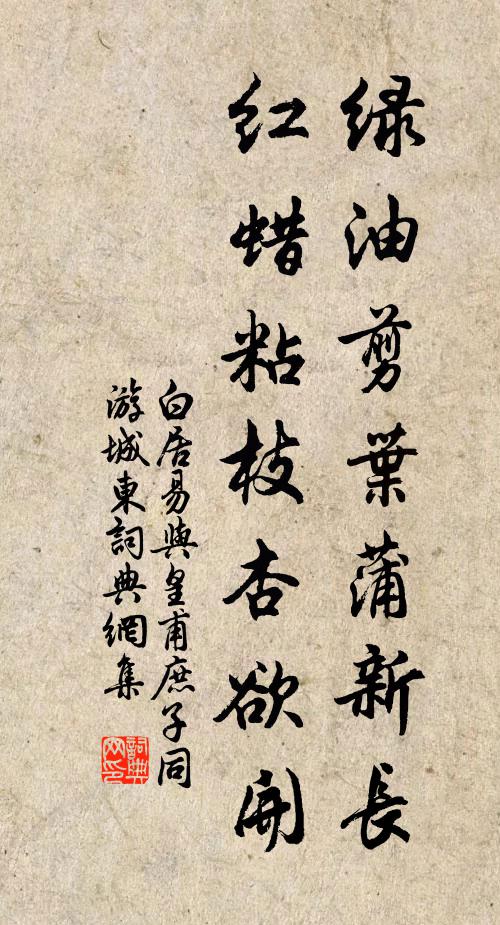 绿油剪葉蒲新長
红蜡粘枝杏欲開
白居易與皇甫庶子同
游城東詞典網集
詞典网印